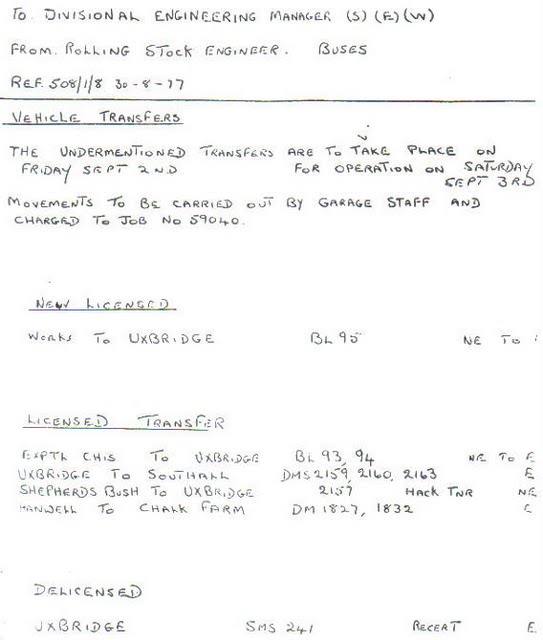 TO DIVISIONAL ENGINEERING MANAGER (S) (E) (W)
FROM ROLLING STOCK ENGINEER. BUSES
REF. 508/1/8 30-8-77
VEHICLE TRANSFERS
THE UNDERMENTIONED TRANSFERS ARE TO TAKE PLACE ON
FRIDAY SEPT 2ND FOR OPERATION ON SATURDAY
SEPT 3RD
MOVEMENTS TO BE CARRIED OUT BY GARAGE STAFF AND
CHARGED TO JOB NO 59040.
NEW LICENSED
WORKS TO UXBRIDGE BL 95 NE TO
LICENSED TRANSFER
EXPTL CHIS TO UXBRIDGE BL 93, 94 NE TO E
UXBRIDGE TO SOUTHALL DMS 2159, 2160, 2163 E
SHEPHERDS BUSH TO UXBRIDGE 2157 HACK TNR NE
HANWELL TO CHALK FARM DM 1827, 1832
DELICENSED
UXBRIDGE SMS 241 RECERT E